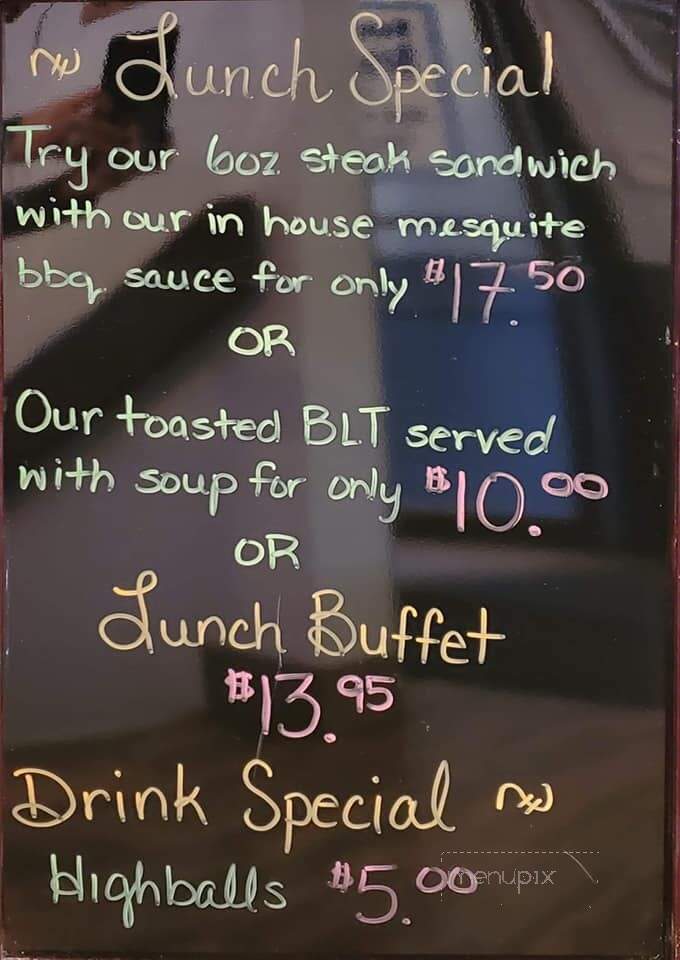 Lunch Special
Try our 6oz steak sandwich
with our in house mesquite
bbq sauce for only $17.50
OR
Our toasted BLT served
with soup for only $10.00
OR
Lunch Buffet
$13.95
Drink Special
Highballs $5.00
menupix